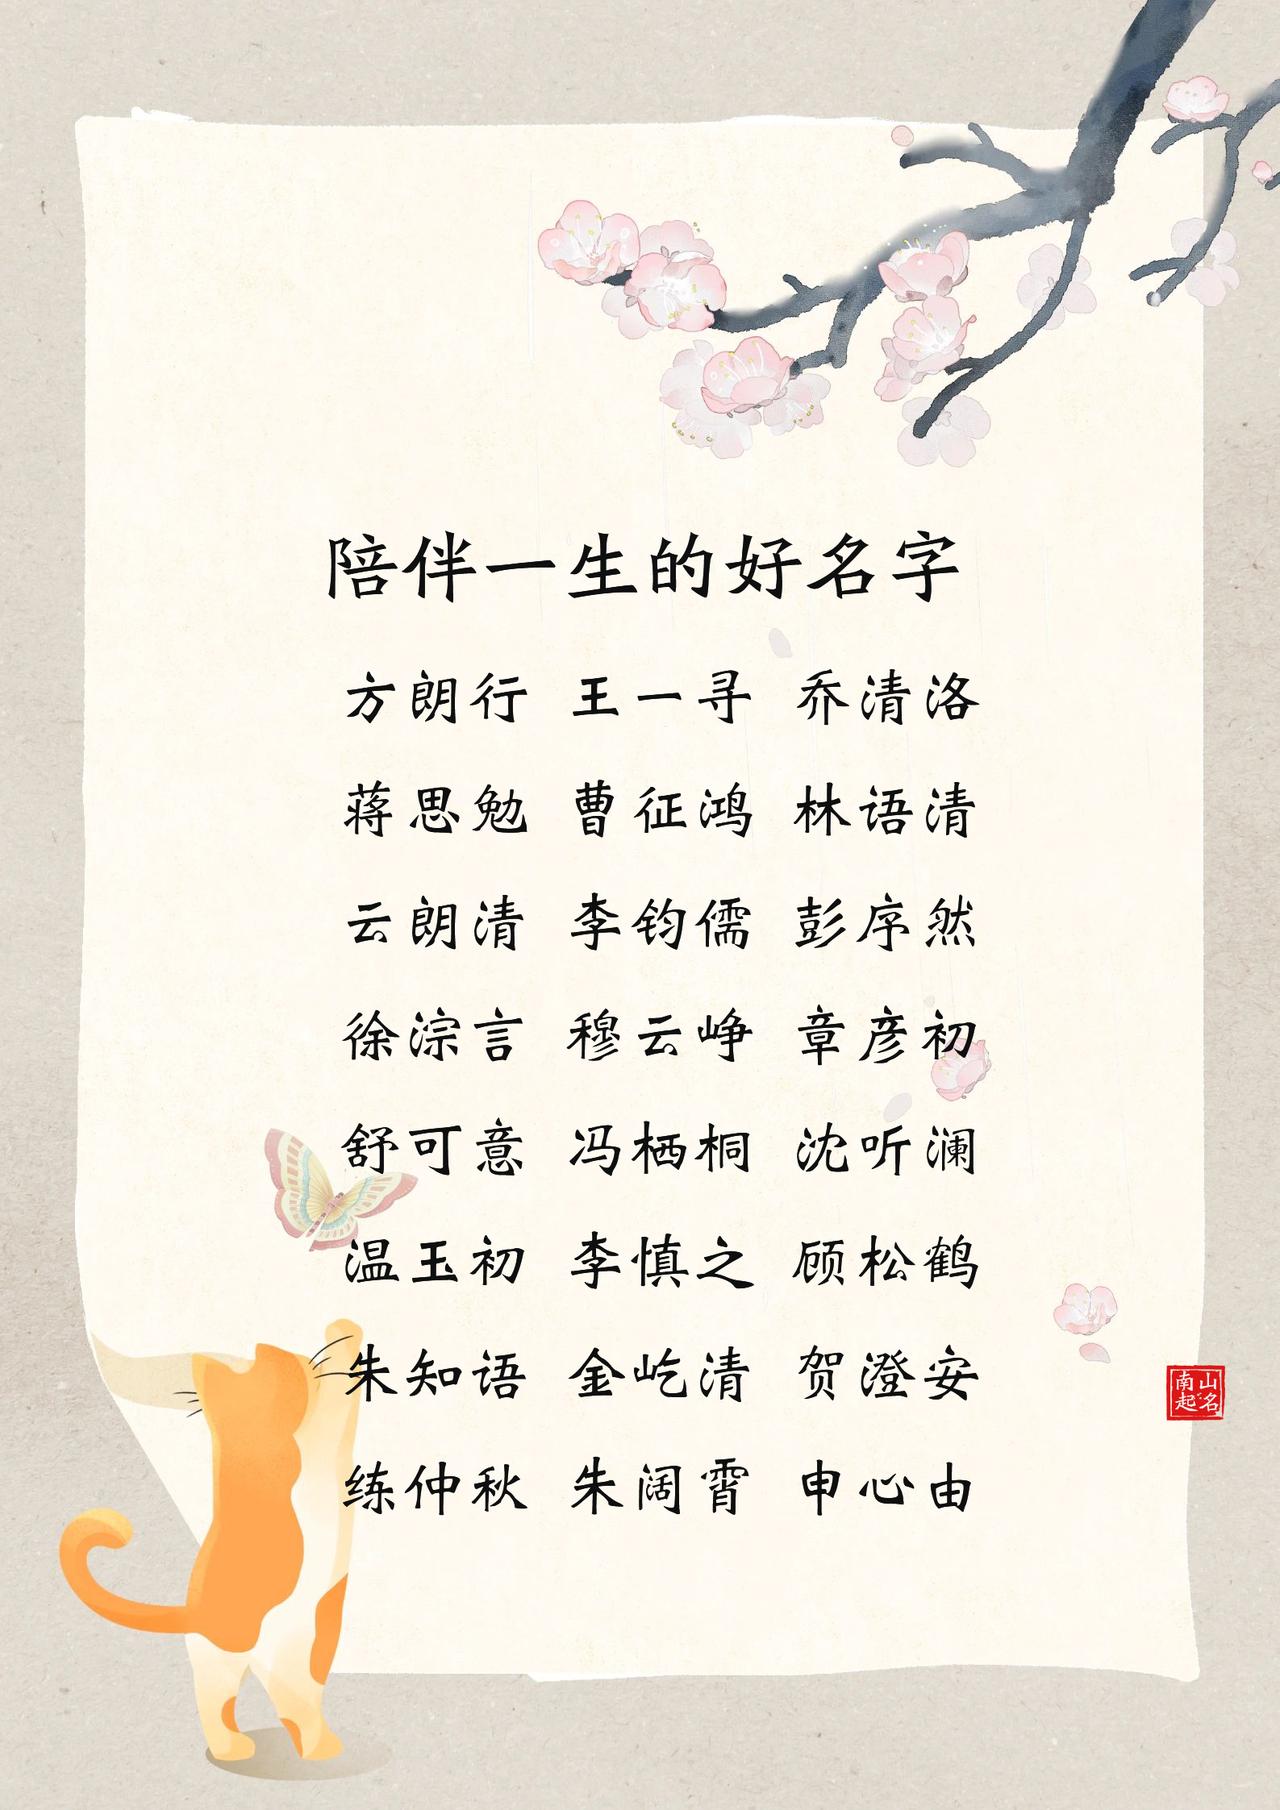 陪伴一生的好名字
方朗行 王一寻 乔清洛
蒋思勉 曹征鸿 林语清
云朗清 李钧儒 彭序然
徐淙言 穆云峥 章彦初
舒可意 冯栖桐 沈听澜
温玉初 李慎之 顾松鹤
朱知语 金屹清 贺澄安
练仲秋 朱阔霄 申心由
南山起名